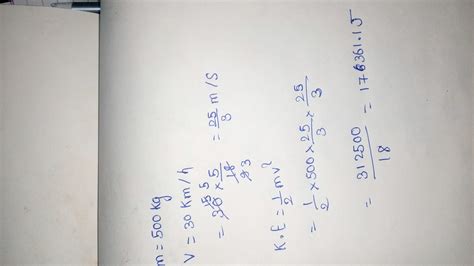 m = 500 kg
V = 30 Km/h
= 30 × 5/18 = 25/3 m/s
K.E = 1/2 mv²
= 1/2 × 500 × 25/3 × 25/3
= 312500/18 = 17361.1 J